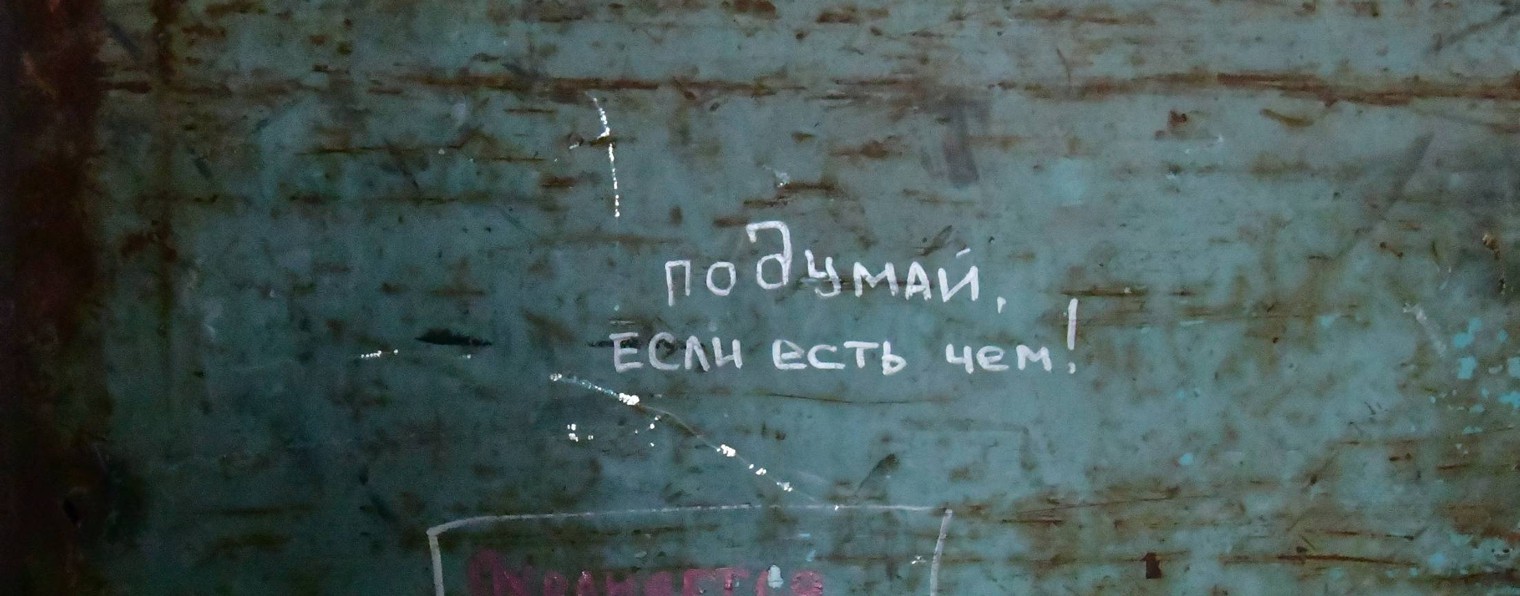 подумай,
Если есть чем!